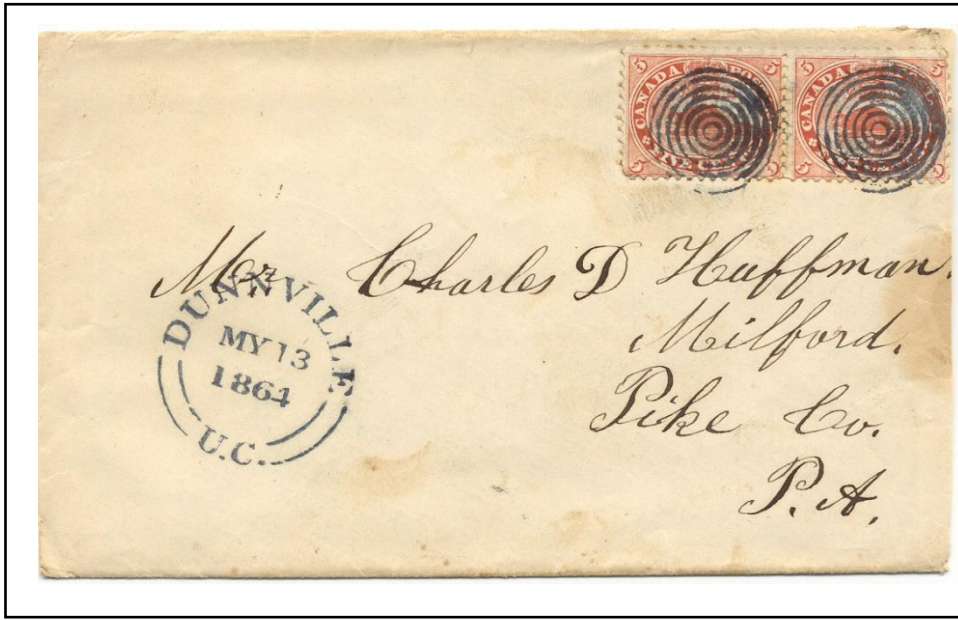 5 CANADA POS 5
5 FIVE C
5 CANADA 5
5
Mr. Charles D Huffman.
Milford.
Pike Co.
P.A.
DUNNVILLE
MY 13
1864
U.C.